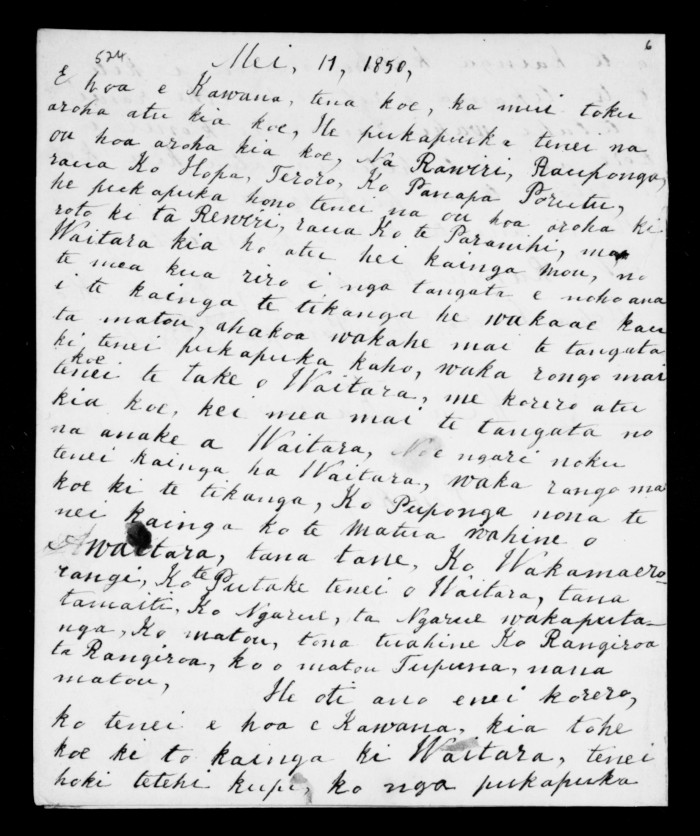 524
6
Mei, 17, 1850,
E hoa e Kawana, tena koe, ka nui toku
aroha atu kia koe, He pukapuka tenei na
ou hoa aroha kia koe, Na Rawiri, Rauponga,
raua Ko Hopa, Teroro, Ko Panapa Porutu,
he pukapuka hono tenei na ou hoa aroha ki
roto ki ta Rewiri, raua Ko te Paranihi, mo
Waitara kia ho atu hei kainga mou, no
te mea kua riro i nga tangata e noho ana
i te kainga te tikanga he wakaae kau
ta matou, ahakoa wakahe mai te tangata
ki tenei pukapuka kaho, waka rongo mai
koe
tenei te take o Waitara, me korero atu
kia koe, kei mea mai te tangata no
na anake a Waitara, Noe ngari noku
tenei kainga ha Waitara, waka rango ma
koe ki te tikanga, Ko Puponga nona te
nei kainga ko te Matua wahine o
Awaitara, tana tane, Ko Wakamaero-
rangi, Ko te Putake tenei o Waitara, tana
tamaiti, Ko Ngarue, ta Ngarue wakaputa-
nga, Ko matou, tona tuahine Ko Rangiroa
ta Rangiroa, ko o matou Tupuna, nana
matou,
He oti ano enei korero,
ko tenei e hoa e Kawana, kia tohe
koe ki to kainga ki Waitara, tenei
hoki tetehi kupu, ko nga pukapuka